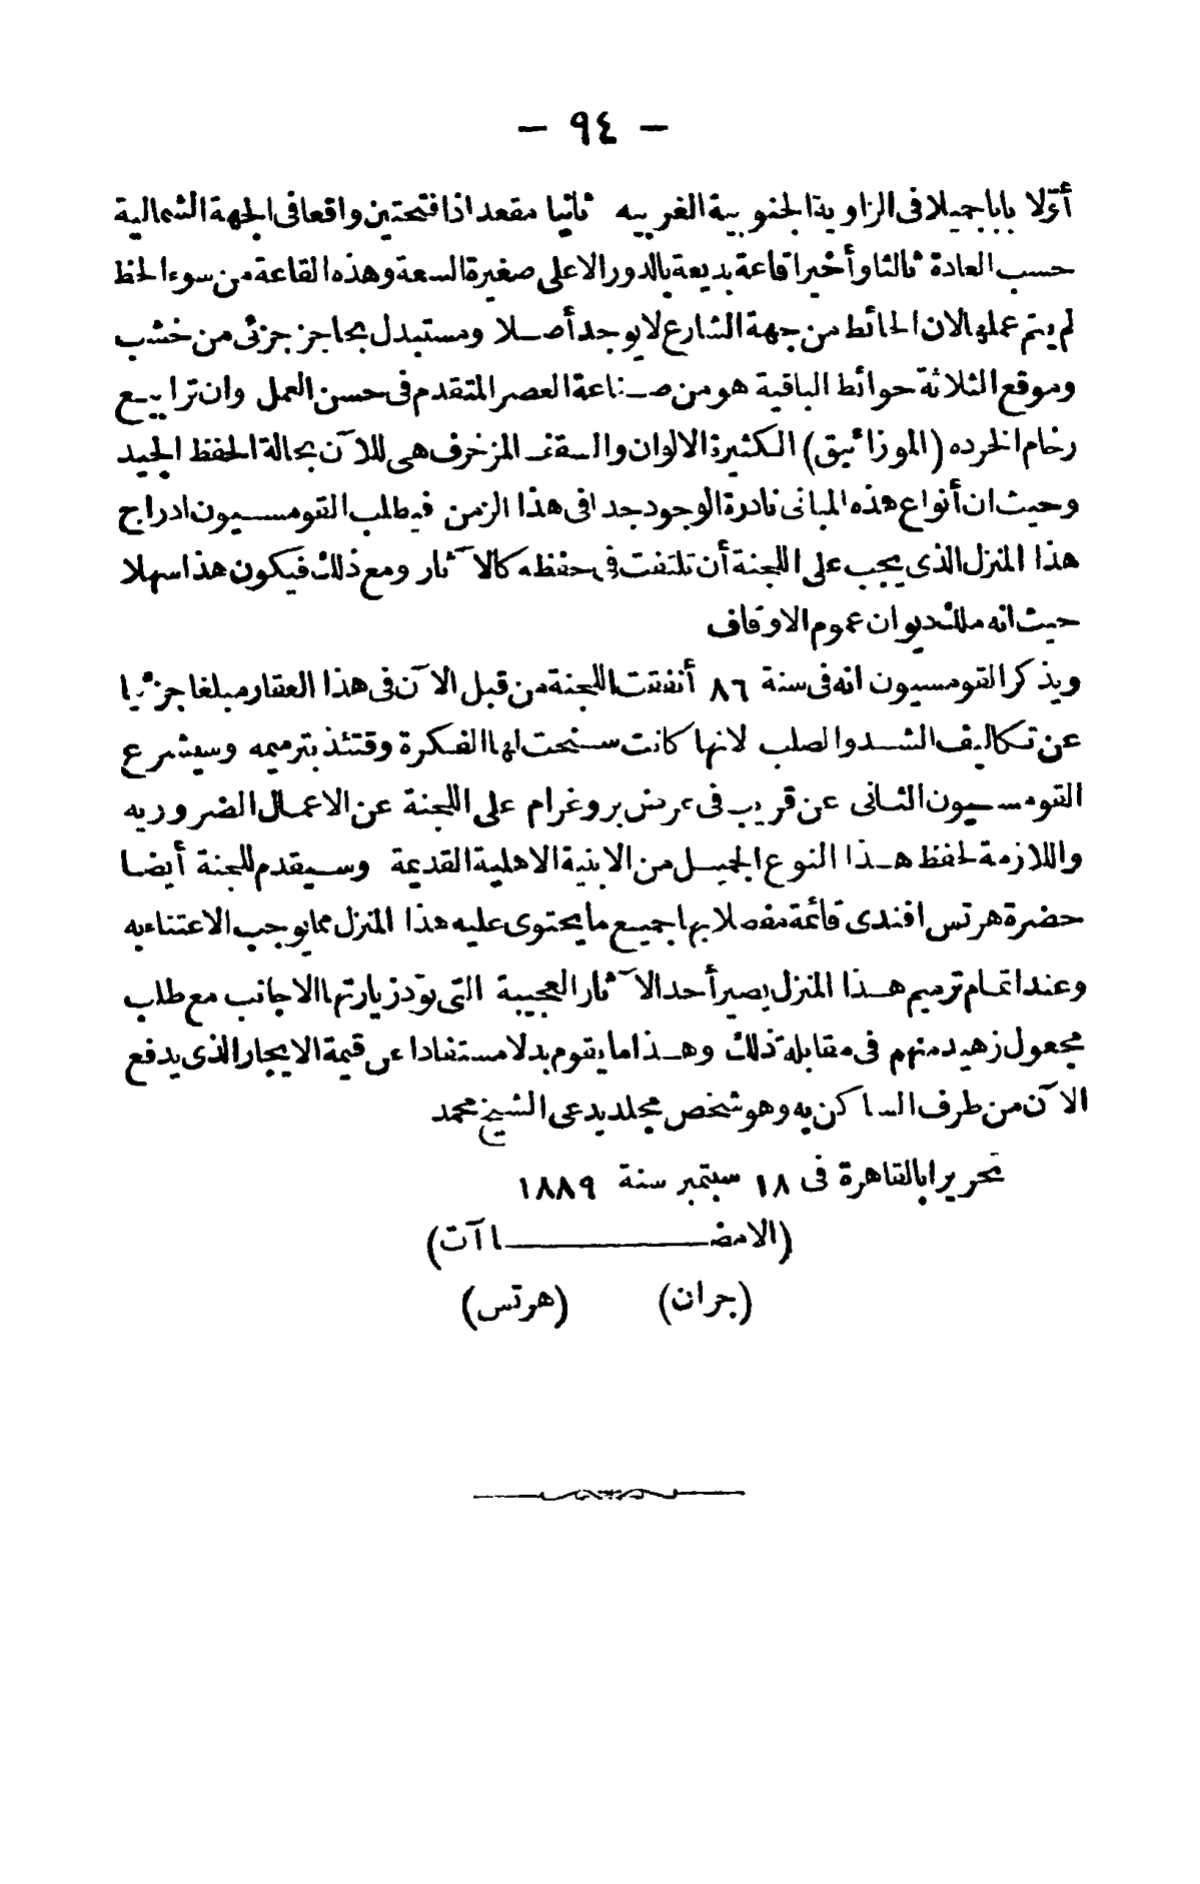 — ٩٤ —
أوّلا بابا جميلا فى الزاوية الجنوبية الغربيه ثانيا مقعدا ذا فتحتين واقعا فى الجهة الشمالية
حسب العادة ثالثا وأخيرا قاعة بديعة بالدور الاعلى صغيرة السعة وهذه القاعة من سوء الحظ
لم يتم عملها لان الحائط من جهة الشارع لا يوجد أصلا ومستبدل بحاجز جزئى من خشب
وموقع الثلاثة حوائط الباقية هو من صناعة العصر المتقدم فى حسن العمل وان ترابيع
رخام الخرده (الموزائيق) الكثيرة الالوان والسقف المزخرف هى للآن بحالة الحفظ الجيد
وحيث ان أنواع هذه المبانى نادرة الوجود جدا فى هذا الزمن فيطلب القومسيون ادراج
هذا المنزل الذى يجب على اللجنة أن تلتفت فى حفظه كالآثار ومع ذلك فيكون هذا سهلا
حيث انه ملك ديوان عموم الاوقاف
ويذكر القومسيون انه فى سنة ٨٦ أنفقت اللجنة من قبل الآن فى هذا العقار مبلغا جزئيا
عن تكاليف الشد والصلب لانها كانت سنحت لها الفكرة وقتئذ بترميمه وسيشرع
القومسيون الثانى عن قريب فى عرض بروغرام على اللجنة عن الاعمال الضروريه
واللازمة لحفظ هذا النوع الجميل من الابنية الاهلية القديمة وسيقدم للجنة أيضا
حضرة هرتس افندى قائمة مفصلا بها جميع ما يحتوى عليه هذا المنزل مما يوجب الاعتناء به
وعند اتمام ترميم هذا المنزل يصير أحد الآثار العجيبة التى تودّ زيارتها الاجانب مع طلب
مجعول زهيد منهم فى مقابلة ذلك وهذا ما يقوم بدلا مستفادا عن قيمة الايجار الذى يدفع
الآن من طرف الساكن به وهو شخص مجلد يدعى الشيخ محمد
تحريرا بالقاهرة فى ١٨ سبتمبر سنة ١٨٨٩
(الامضاآت)
(جران) (هرتس)